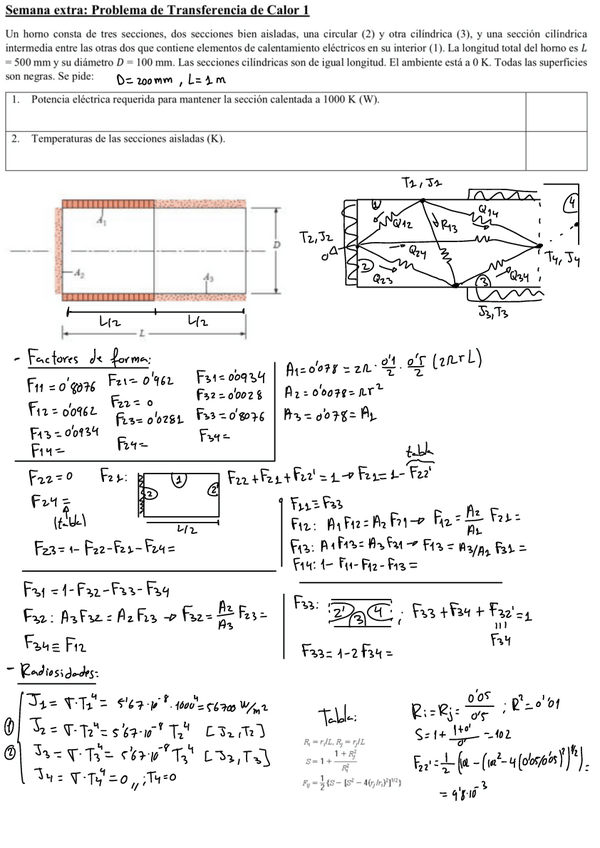 Semana extra: Problema de Transferencia de Calor 1
Un horno consta de tres secciones, dos secciones bien aisladas, una circular (2) y otra cilíndrica (3), y una sección cilíndrica
intermedia entre las otras dos que contiene elementos de calentamiento eléctricos en su interior (1). La longitud total del horno es L
= 500 mm y su diámetro D = 100 mm. Las secciones cilíndricas son de igual longitud. El ambiente está a 0 K. Todas las superficies
son negras. Se pide:
D= 200mm , L= 1 m
1. Potencia eléctrica requerida para mantener la sección calentada a 1000 K (W).
2. Temperaturas de las secciones aisladas (K).
A1
A2
A3
D
L/2
L/2
L
T1, J1
T2, J2
Q12
R13
Q14
Q24
Q23
Q34
T4, J4
J3, T3
1
2
3
4
- Factores de forma:
F11 = 0'8076
F12 = 0'0962
F13 = 0'0934
F14=
F21= 0'962
F22= 0
F23= 0'0281
F24=
F31= 0'0934
F32= 0'0028
F33= 0'8076
F34=
A1= 0'078 = 2π · 0'1/2 · 0'5/2 (2πrL)
A2= 0'0078= πr²
A3= 0'078= A1
F22=0
F24=
(tabla)
F21:
1
2
2'
L/2
F22 + F21 + F22' = 1 → F21= 1- F22'
tabla
F23= 1- F22-F21-F24=
F11=F33
F12: A1F12= A2 F21 → F12 = A2/A1 F21=
F13: A1F13= A3F31 → F13 = A3/A1 F31=
F14: 1- F11-F12-F13=
F31 = 1-F32-F33-F34
F32: A3F32 = A2F23 → F32= A2/A3 F23=
F34≡ F12
F33:
2'
3
4
; F33 + F34 + F32' = 1
F34
F33= 1-2F34=
- Radiosidades:
J1= ∇·T1⁴ = 5'67·10⁻⁸ · 1000⁴ = 56700 W/m2
1 J2= ∇·T2⁴= 5'67·10⁻⁸ T2⁴ [J2,T2]
2 J3= ∇·T3⁴= 5'67·10⁻⁸ T3⁴ [J3, T3]
J4= ∇·T4⁴ =0 ,, ; T4=0
Tabla:
Ri = ri/L, Rj = rj/L
S = 1 + (1 + Rj²)/Ri²
Fij = 1/2 {S − [S² − 4(rj/ri)²]^1/2}
Ri=Rj= 0'05/0'5 ; R²=0'01
=102
= 9'8·10⁻³